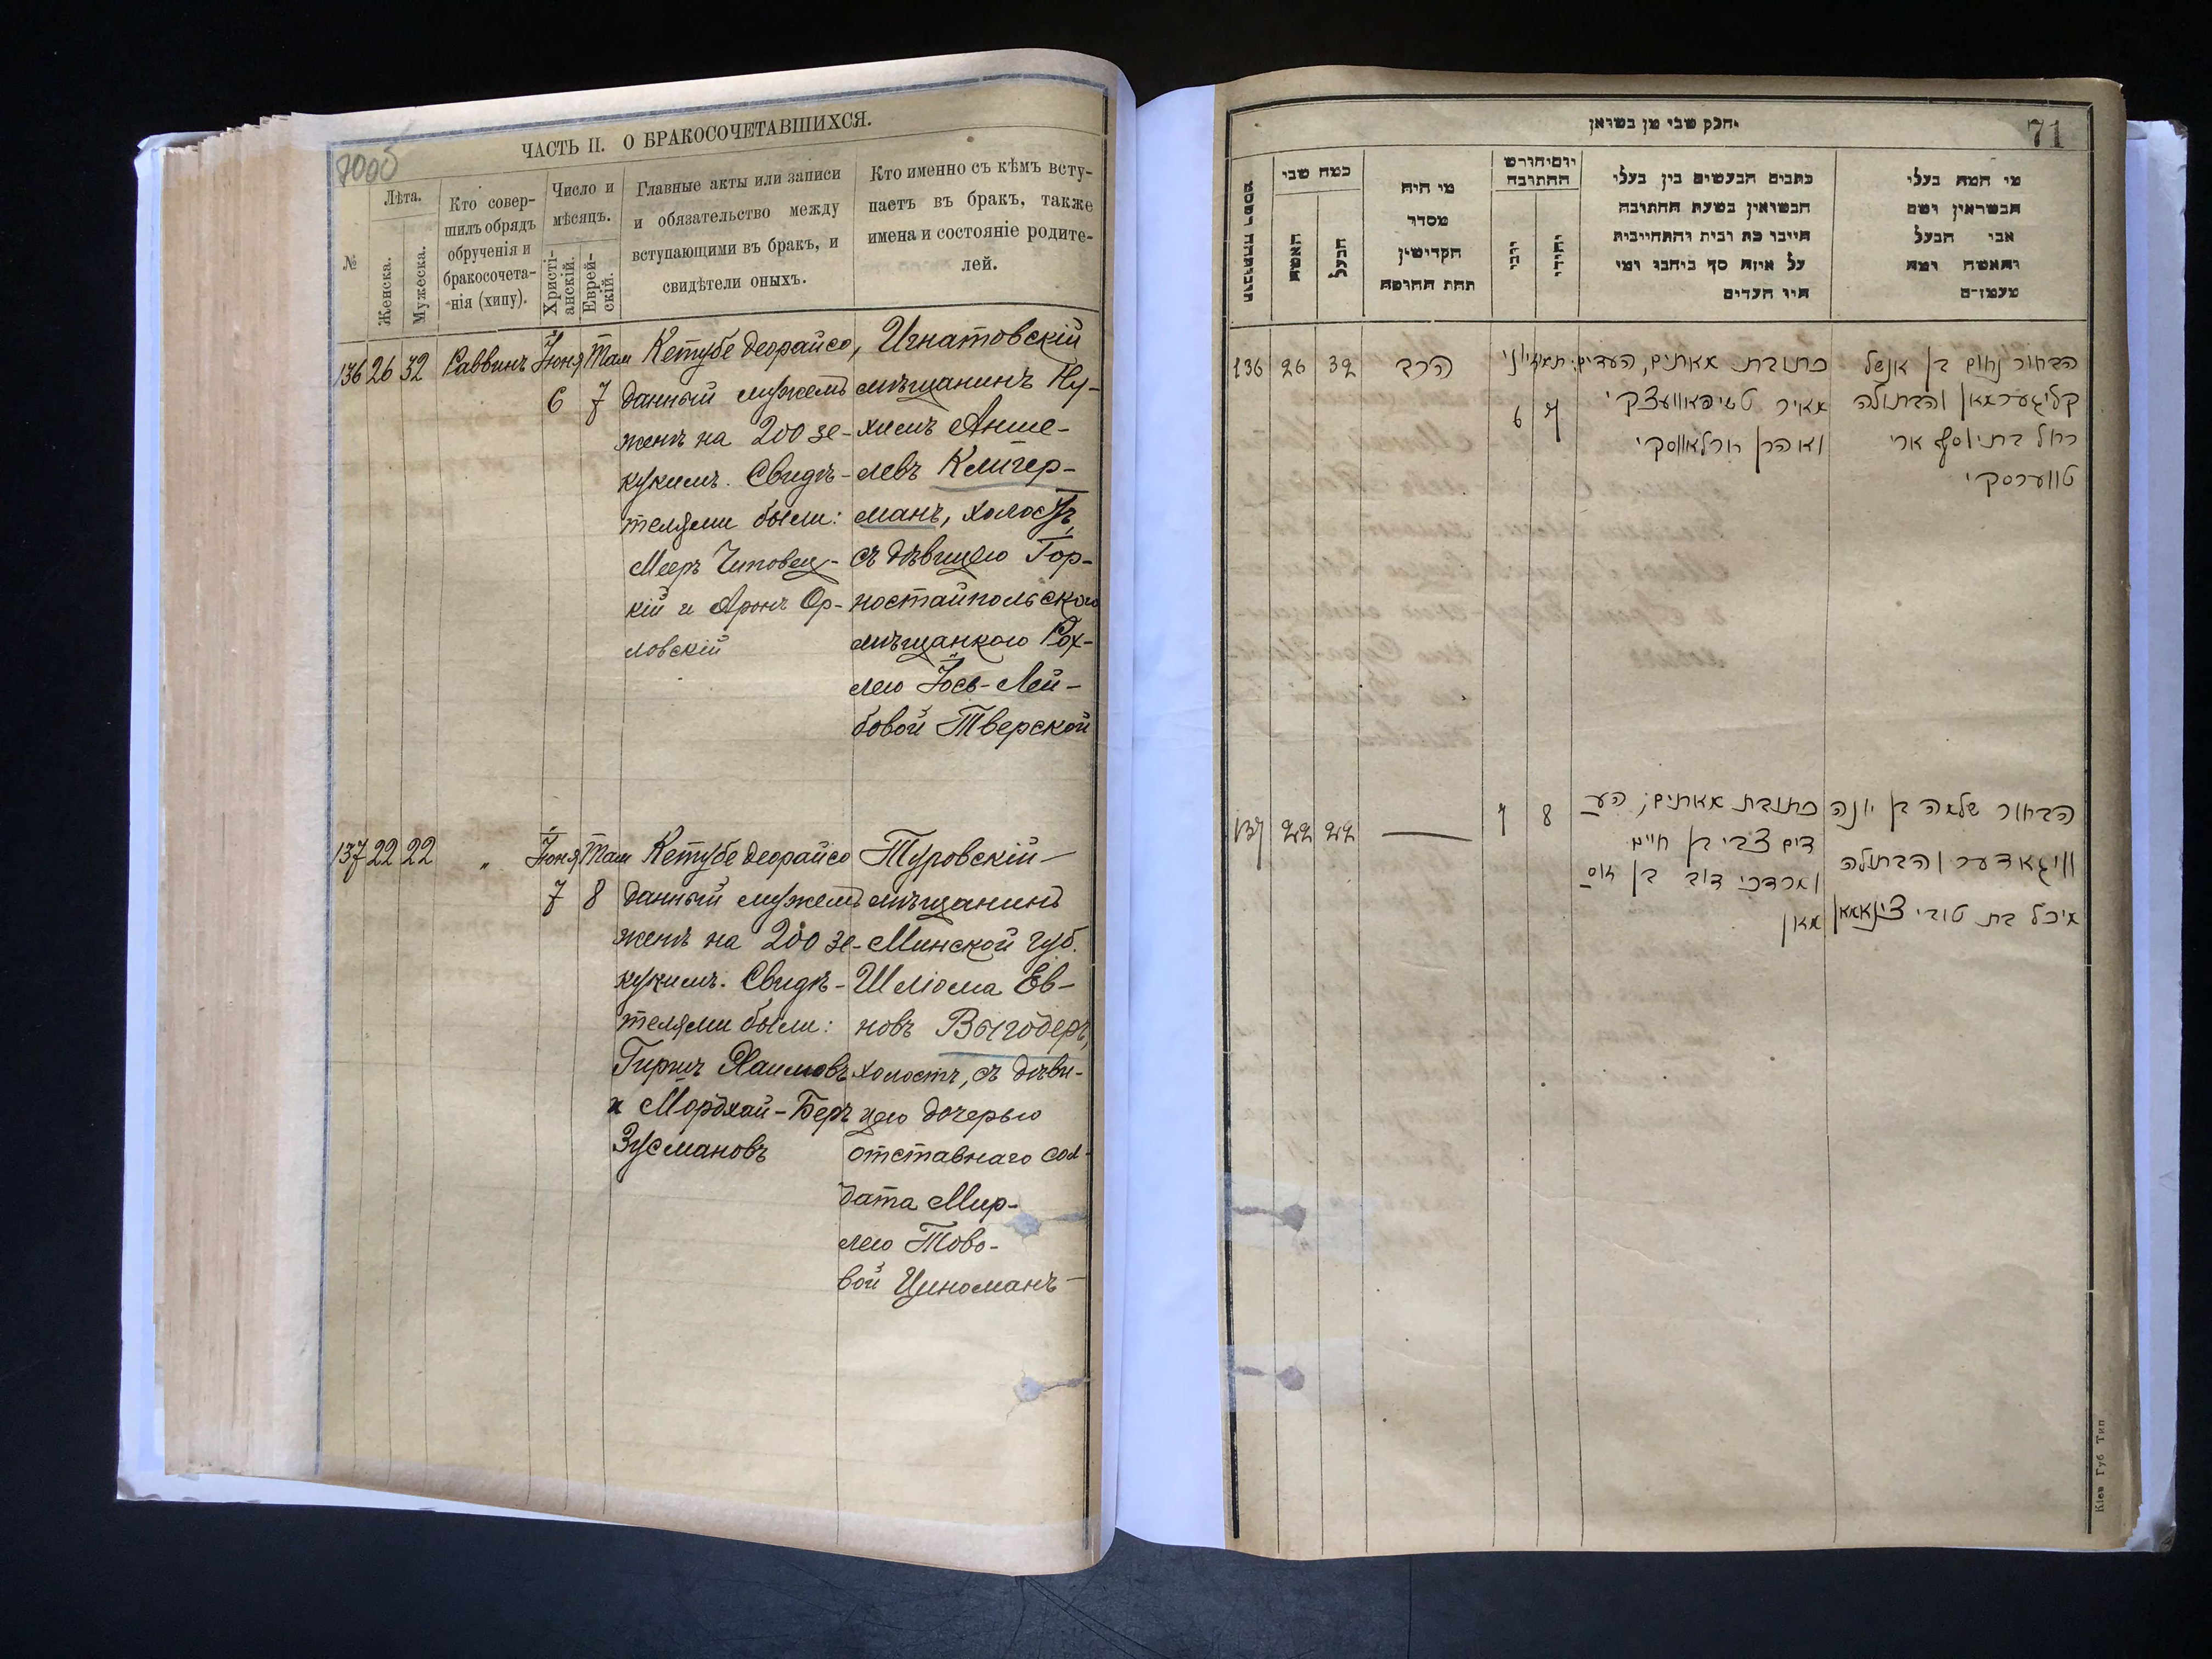 700б
ЧАСТЬ II. О БРАКОСОЧЕТАВШИХСЯ.
№
Лѣта.
Женска.
Мужеска.
Кто совер-
шилъ обрядъ
обрученія и
бракосочета-
нія (хипу).
Число и
мѣсяцъ.
Христі-
анскій.
Еврей-
скій.
Главные акты или записи
и обязательство между
вступающими въ бракъ, и
свидѣтели оныхъ.
Кто именно съ кѣмъ всту-
паетъ въ бракъ, также
имена и состояніе родите-
лей.
136 26 32 Раввинъ Іюня 6 Там 7
Кетубе деорайсо,
данный мужемъ
женѣ на 200 зе-
кукимъ. Свидѣ-
телями были:
Мееръ Чиповец-
кій и Аронъ Ор-
ловскій
Игнатовскій
мѣщанинъ Ну-
химъ Анше-
левъ Клигер-
манъ, холостъ,
съ дѣвицею Гор-
ностайпольскою
мѣщанкою Рох-
лею Іось-Лей-
бовой Тверской
137 22 22 „ Іюня 7 Там 8
Кетубе деорайсо
данный мужемъ
женѣ на 200 зе-
кукимъ. Свидѣ-
телями были:
Гиршъ Хаимовъ
и Мордхай-Беръ
Зусмановъ
Туровскій
мѣщанинъ
Минской губ.
Шліома Ев-
новъ Выгодеръ,
холостъ, съ дѣви-
цею дочерью
отставнаго сол-
дата Мир-
лею Тово-
вой Циноманъ
71
חלק שני מן נשואין
מי המה בעלי
הנשואין ושם
אבי הבעל
והאשה ומה
מעמדם
כתבים הנעשים בין בעלי
הנשואין בשעת החתונה
על איזה סך ביחבו ומי
היו העדים
יום וחודש
החתונה
יהודי
מי היה
מסדר
הקדושין
תחת החופה
כמה שני
הבעל
האשה
136 26 32 הרב
יוני 6 תמוז 7
כתובת מאתים, העדים:
מאיר טשיפאוועצקי
ואהרן ארלאווסקי
הבחור נחום בן אנשל
קליגערמאן והבתולה
רחל בת יוסף ארי
טווערסקי
137 22 22 — 7 8
כתובת מאתים; הע
דים צבי בן חיים
ומרדכי דוב בן זוס
מאן
הבחור שלמה בן יונה
וויגאדער והבתולה
מירל בת טובי צינאמאן
Кіев Губ Тип